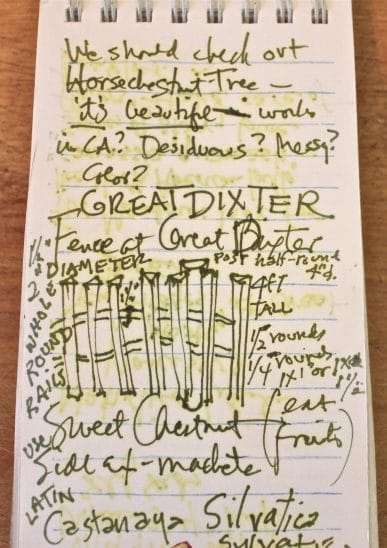 We should check out
Horsechestnut Tree –
it's beautiful – works
in CA? Desiduous? Messy?
Color?
GREAT DIXTER
Fence at Great Dixter
DIAMETER
POST half-round
4ft
TALL
1/2 rounds
1/4 rounds
1x1 or 1x
1 1/2
1 1/2"
2"
WHOLE
ROUND
RAILS
Sweet Chestnut (eat
fruits)
USE
Side ax - machete
LATIN
Castanaya Silvatica
Sylvatic